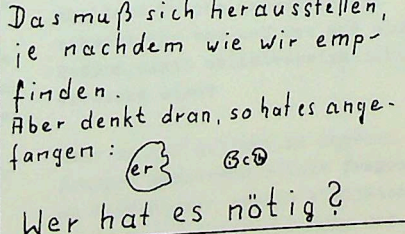 Das muß sich herausstellen,
je nachdem wie wir emp-
finden.
Aber denkt dran, so hat es ange-
fangen: er ich
Wer hat es nötig?